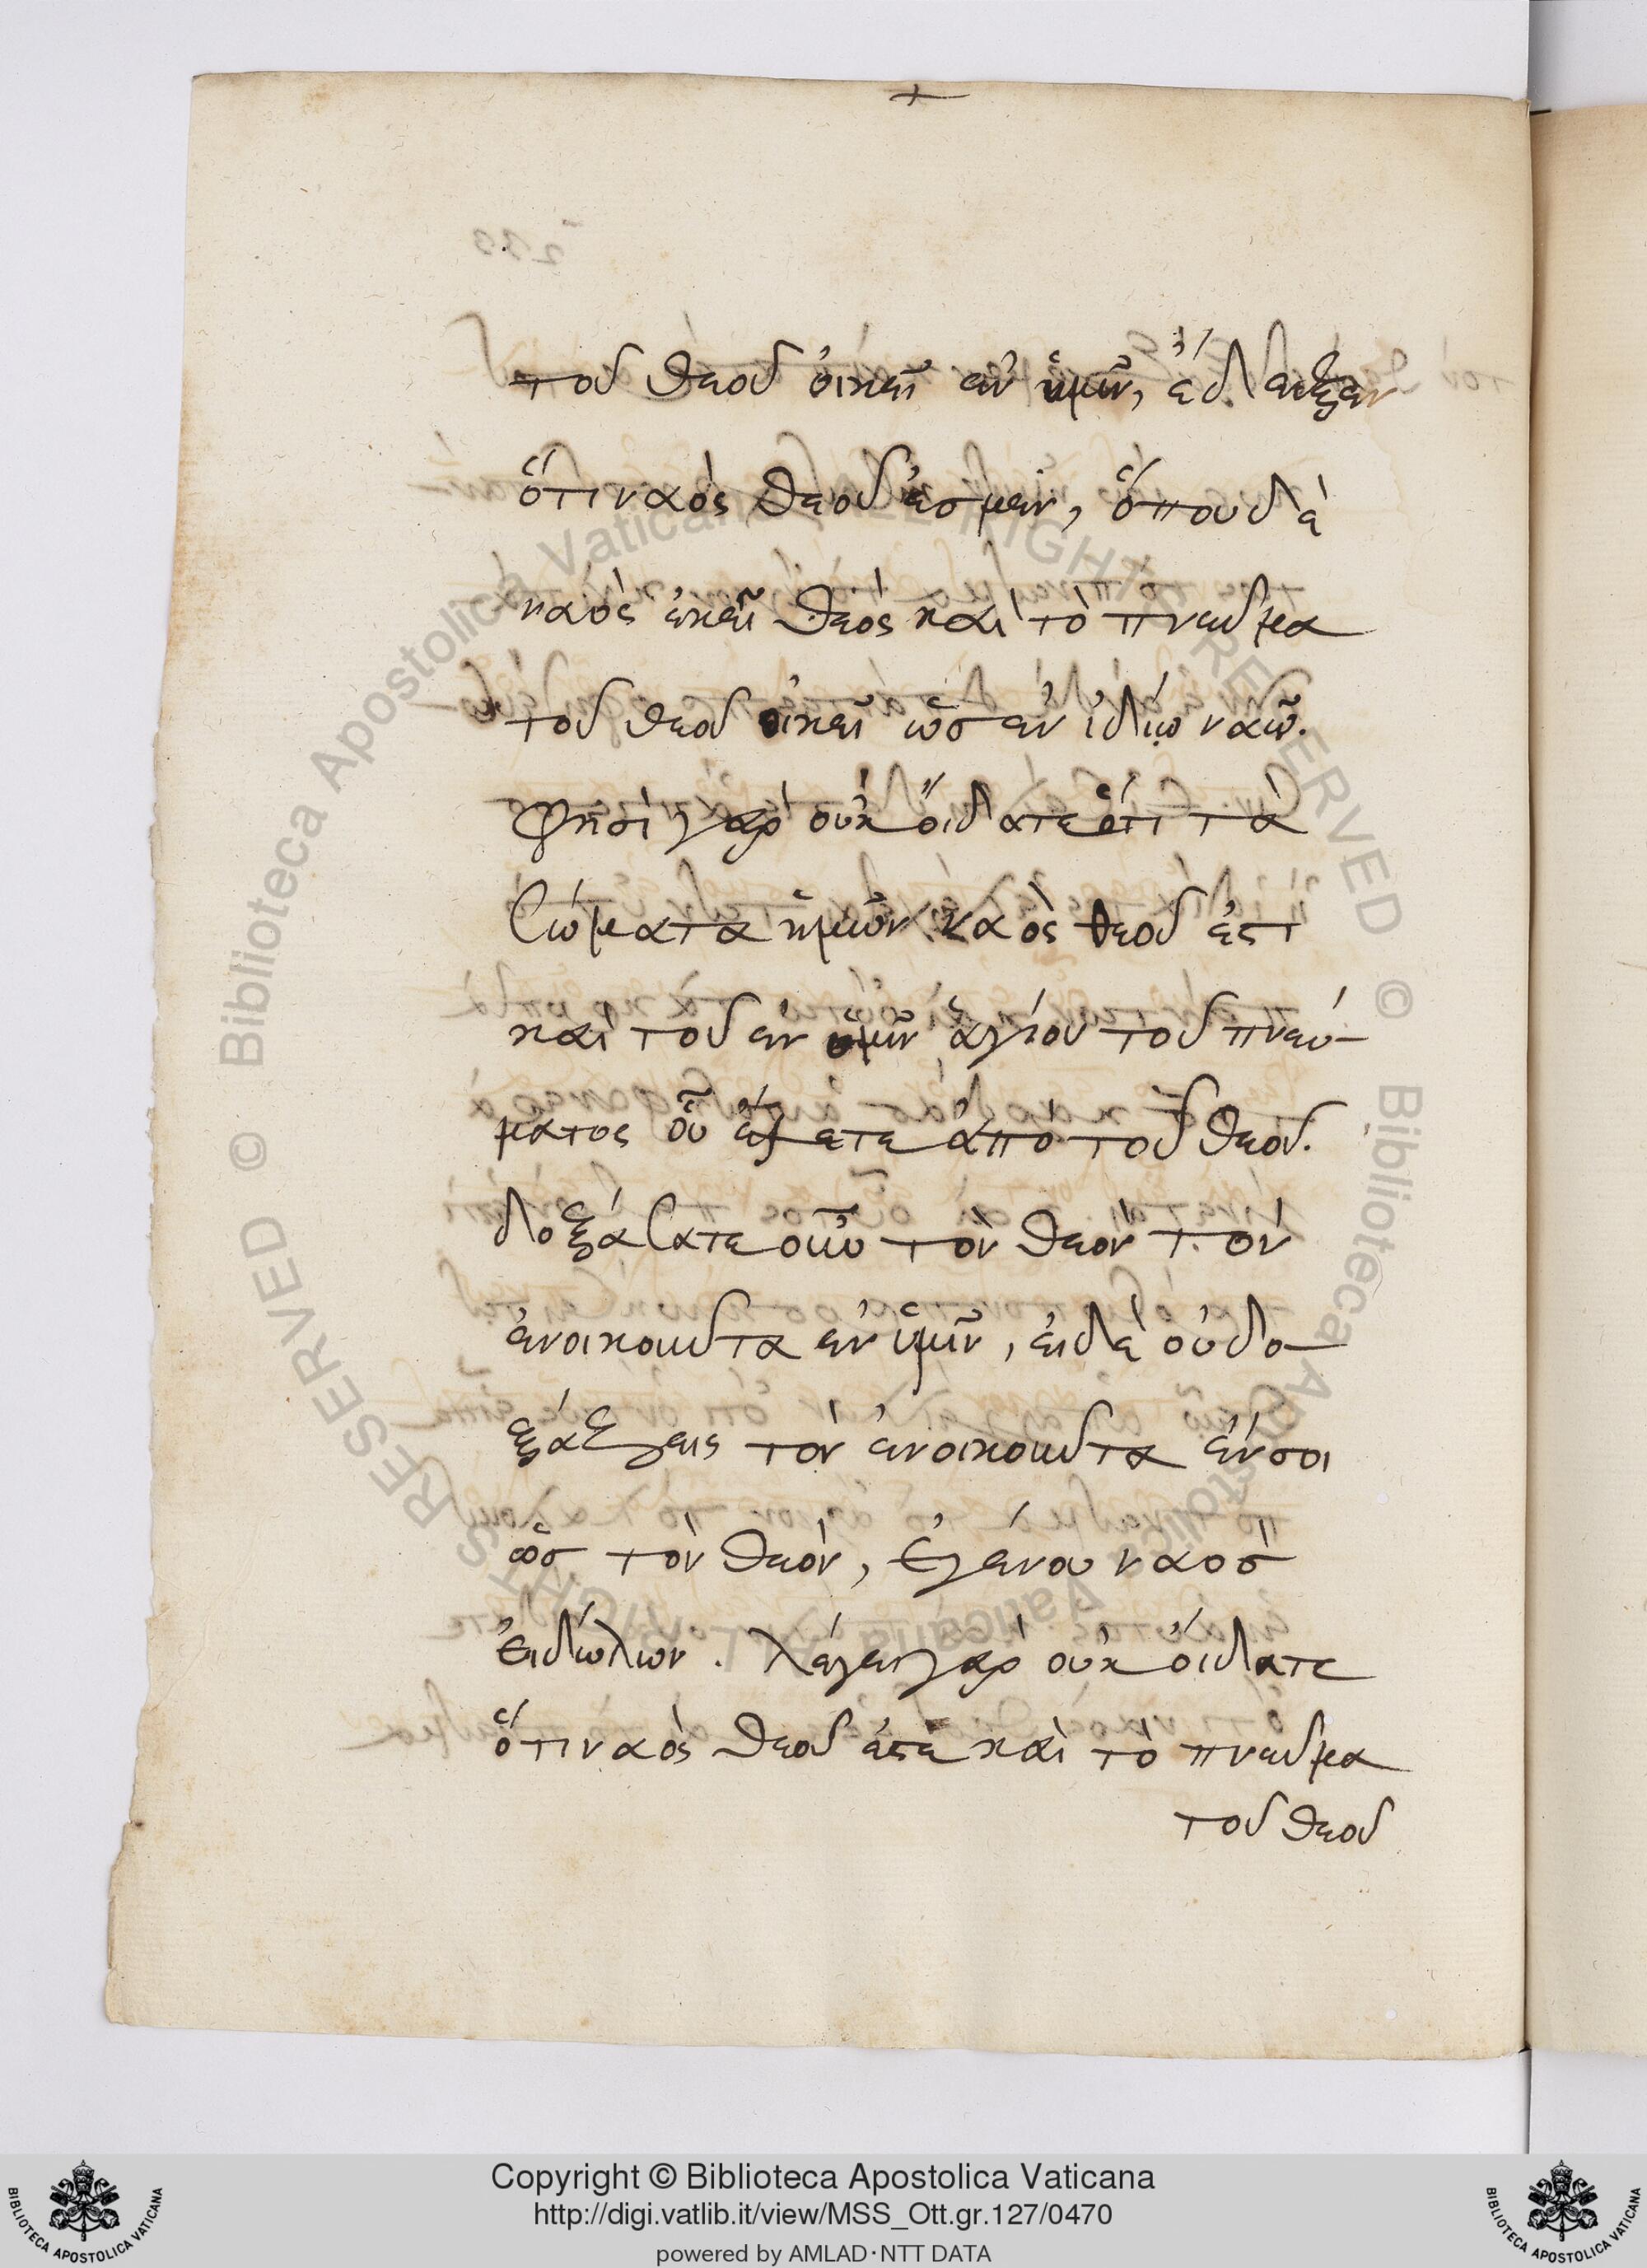 τοῦ θεοῦ ὀικεῖ ἐν ἡμῖν, ἐδλειξεν
ὅτι ναὸς θεοῦ ἐσμεν, ὅπου δὲ
ναὸς ἐκεῖ θεὸς καὶ τὸ πνεῦμα
τοῦ θεοῦ ὀικεῖ ὡς ἐν ἰδίω ναῶ.
φησὶ γὰρ οὐκ ὄιδατε ὅτι τὰ
σώματα ἡμῶν ναὸς θεοῦ ἐστ
καὶ τοῦ ἐν ὑμῖν ἁγίου τοῦ πνεύ-
ματος οὗ ἔχετε ἀπὸ τοῦ θεοῦ.
δοξάσατε οὖν τὸν θεὸν τὸν
ἐνοικοῦντα ἐν ὑμῖν, ἐι δὲ οὐ δο-
ξάζεις τὸν ἐνοικοῦντα ἐν σοι
ὡς τὸν θεὸν, ἐγένου ναὸς
ἐιδώλων. λέγει γὰρ οὐκ ὄιδατε
ὅτι ναὸς θεοῦ ἐστὲ καὶ τὸ πνεῦμα
τοῦ θεοῦ
Copyright © Biblioteca Apostolica Vaticana
http://digi.vatlib.it/view/MSS_Ott.gr.127/0470
powered by AMLAD·NTT DATA
BIBLIOTECA APOSTOLICA VATICANA
BIBLIOTECA APOSTOLICA VATICANA